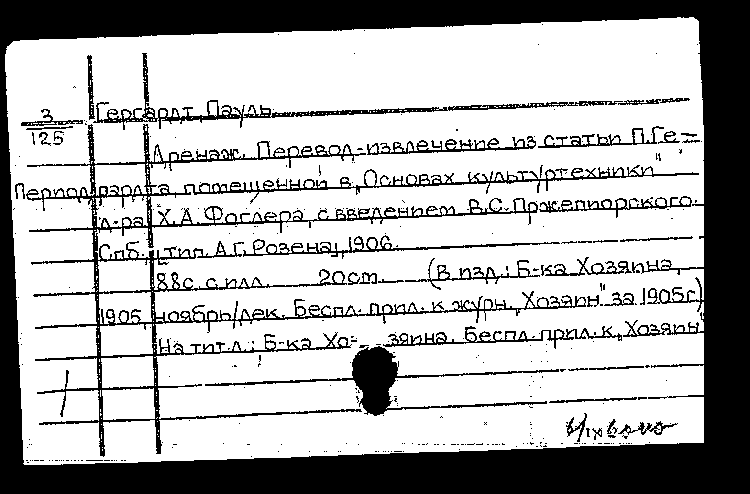 3
125
Гергардт, Пауль.
Дренаж. Перевод-извлечение из статьи П.Ге-
Период гардта, помещенной в „Основах культуртехники"
д-ра Х.А. Фоглера, с введением В.С. Пржепиорского.
Спб., тип. А.Г. Розена, 1906.
88с. с илл. 20см. (В изд.: Б-ка Хозяина,
1905, ноябрь/дек. Беспл. прил. к журн. „Хозяин" за 1905г.)
На тит.л.: Б-ка Хо- зяина. Беспл. прил. к „Хозяин"